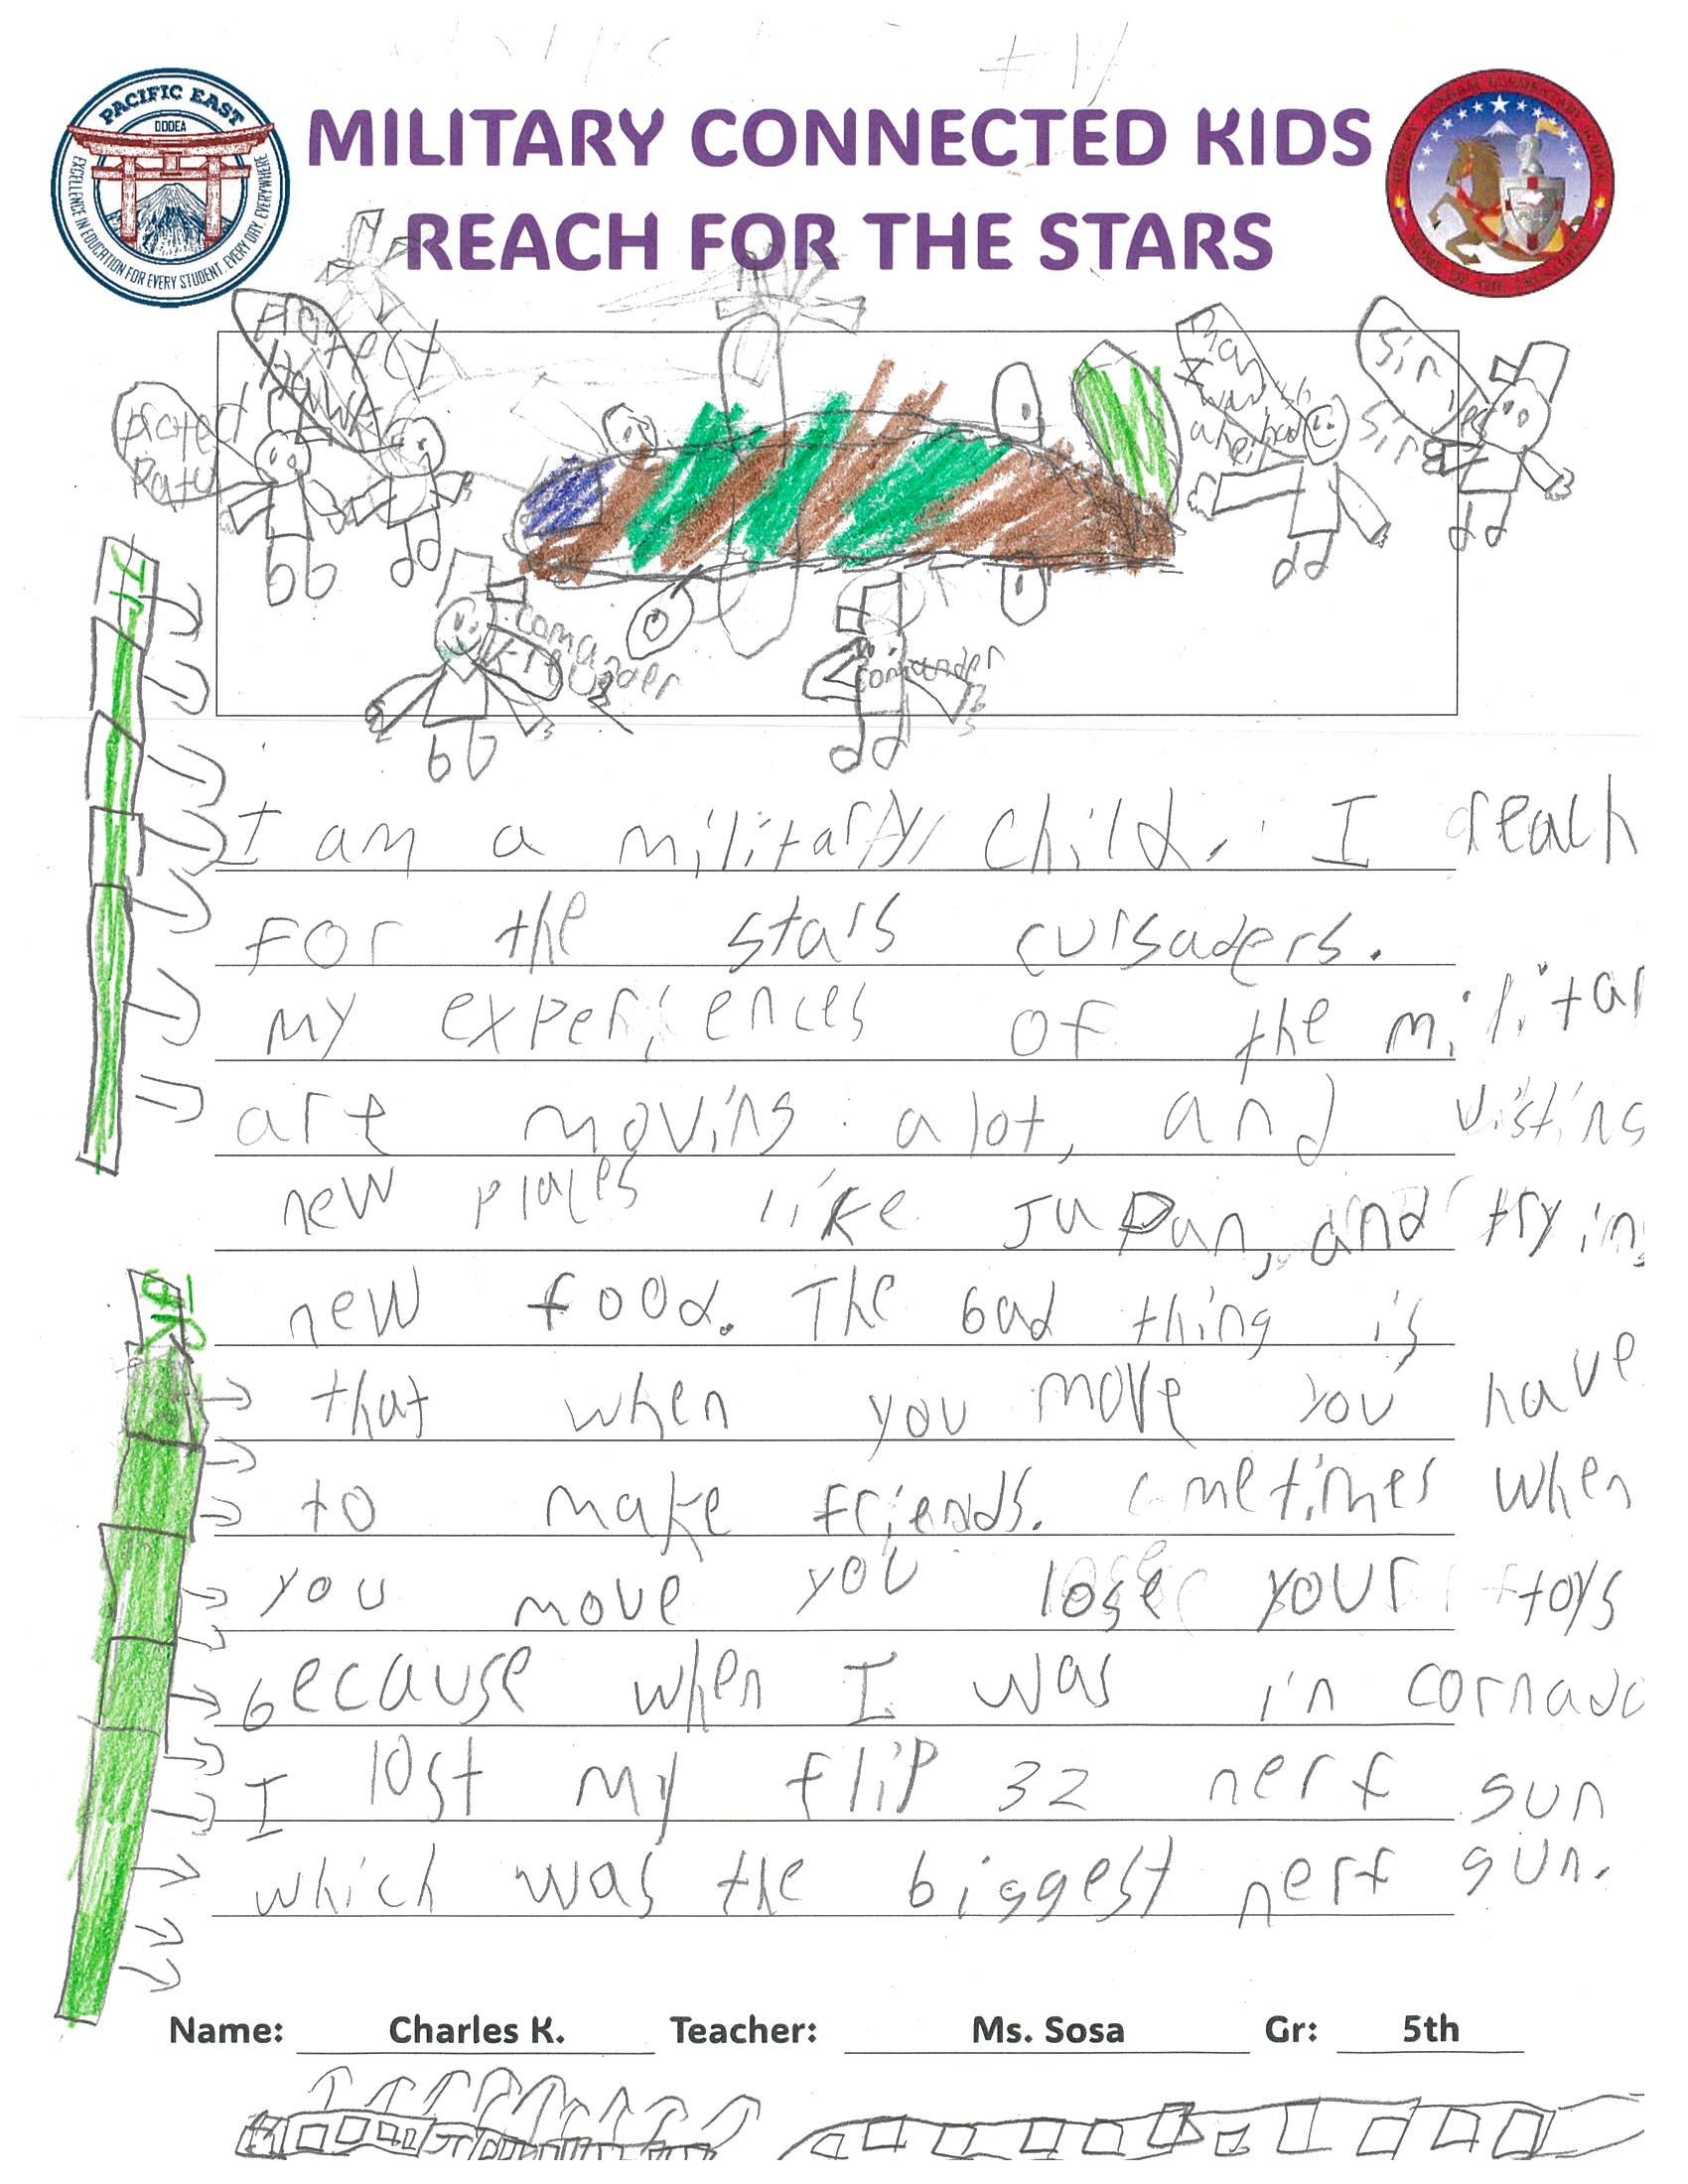 PACIFIC EAST
DODEA
EXCELLENCE IN EDUCATION FOR EVERY STUDENT, EVERY DAY, EVERYWHERE
MILITARY CONNECTED KIDS
REACH FOR THE STARS
Sir yes
Sir
comander
comander
JR
I am a military child. I reach
for the stars cursaders.
my experiences of the militar
are moving alot, and visting
new places like Japan, and trying
new food. The bad thing is
that when you move you have
to make friends. ometimes when
you move you lose your toys
because when I was in cornado
I lost my flip 32 nerf gun
which was the biggest nerf gun.
Name: Charles K. Teacher: Ms. Sosa Gr: 5th